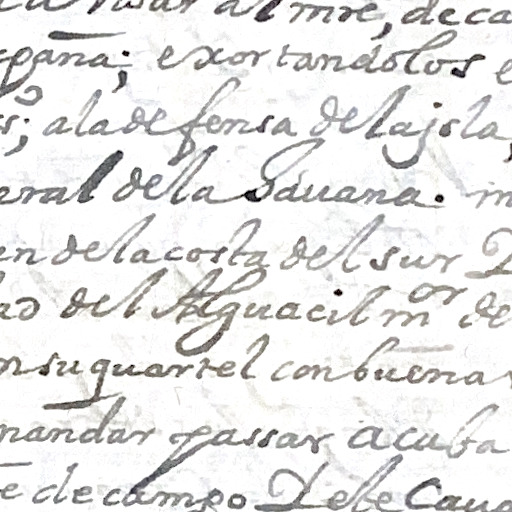 al mre, de ca
spaña; exortandolos e
s; ala defensa de la jsla,
eral de la Sauana. in
en de la costa del sur D
ad del Alguacil mor de
n su quartel con buena
mandar passar a cuba
e de campo D